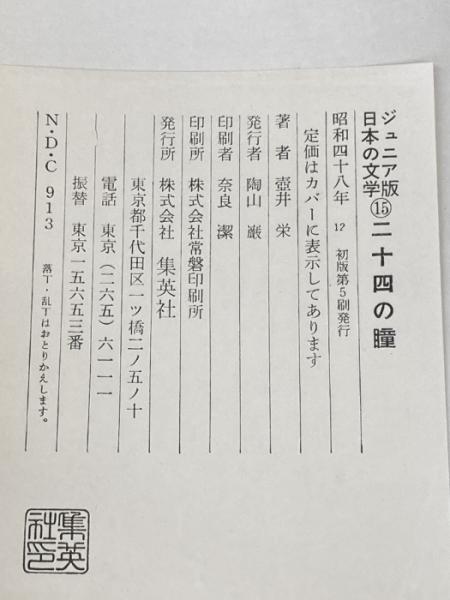 ジュニア版
日本の文学⑮二十四の瞳
昭和四十八年 12 初版第5刷発行
定価はカバーに表示してあります
著者 壺井 栄
発行者 陶山 巌
印刷者 奈良 潔
印刷所 株式会社常磐印刷所
発行所 株式会社 集英社
東京都千代田区一ツ橋二ノ五ノ十
電話 東京(二六五)六一一一
振替 東京一五六五三番
N・D・C 913 落丁・乱丁はおとりかえします。
集英
社印